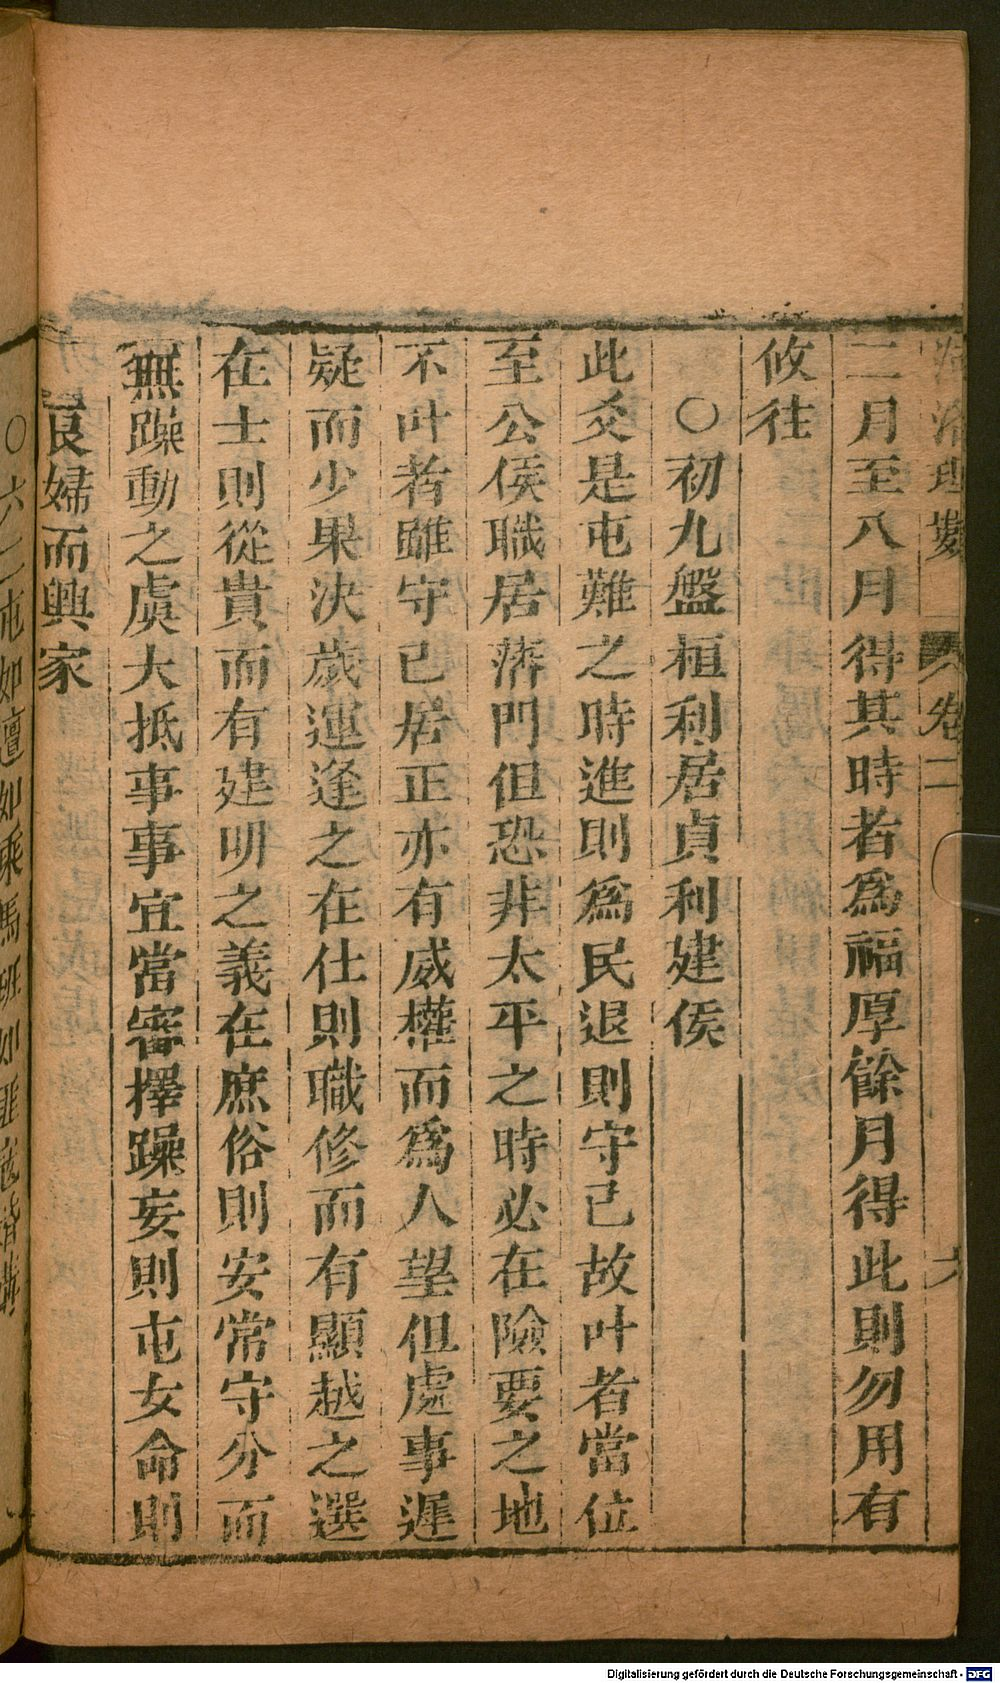 河洛理數 卷二 六
二月至八月得其時者爲福厚餘月得此則勿用有
攸往
○初九盤桓利居貞利建侯
此爻是屯難之時進則爲民退則守己故叶者當位
至公侯職居藩門但恐非太平之時必在險要之地
不叶者雖守己居正亦有威權而爲人望但處事遲
疑而少果決歲運逢之在仕則職修而有顯越之選
在士則從貴而有建明之義在庶俗則安常守分而
無躁動之虞大抵事事宜當審擇躁妄則屯女命則
良婦而興家
○六二屯如邅如乘馬班如匪寇婚媾
Digitalisierung gefördert durch die Deutsche Forschungsgemeinschaft - DFG